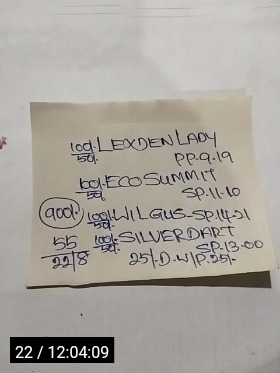 100/- LEXDEN LADY
50/- PP-9.19
100/- ECO SUMMIT
50/- SP-11.10
900/- 100/- WILGUS-SP.14.21
50/-
55 100/- SILVERDART
22/8 50/- SP-13.00
25/-D.W/P.25/-
22 / 12:04:09